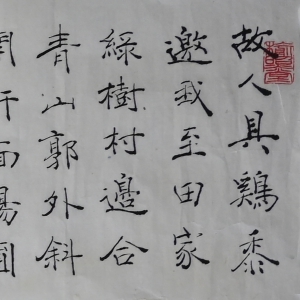 故人具鷄黍
邀我至田家
綠樹村邊合
青山郭外斜
面